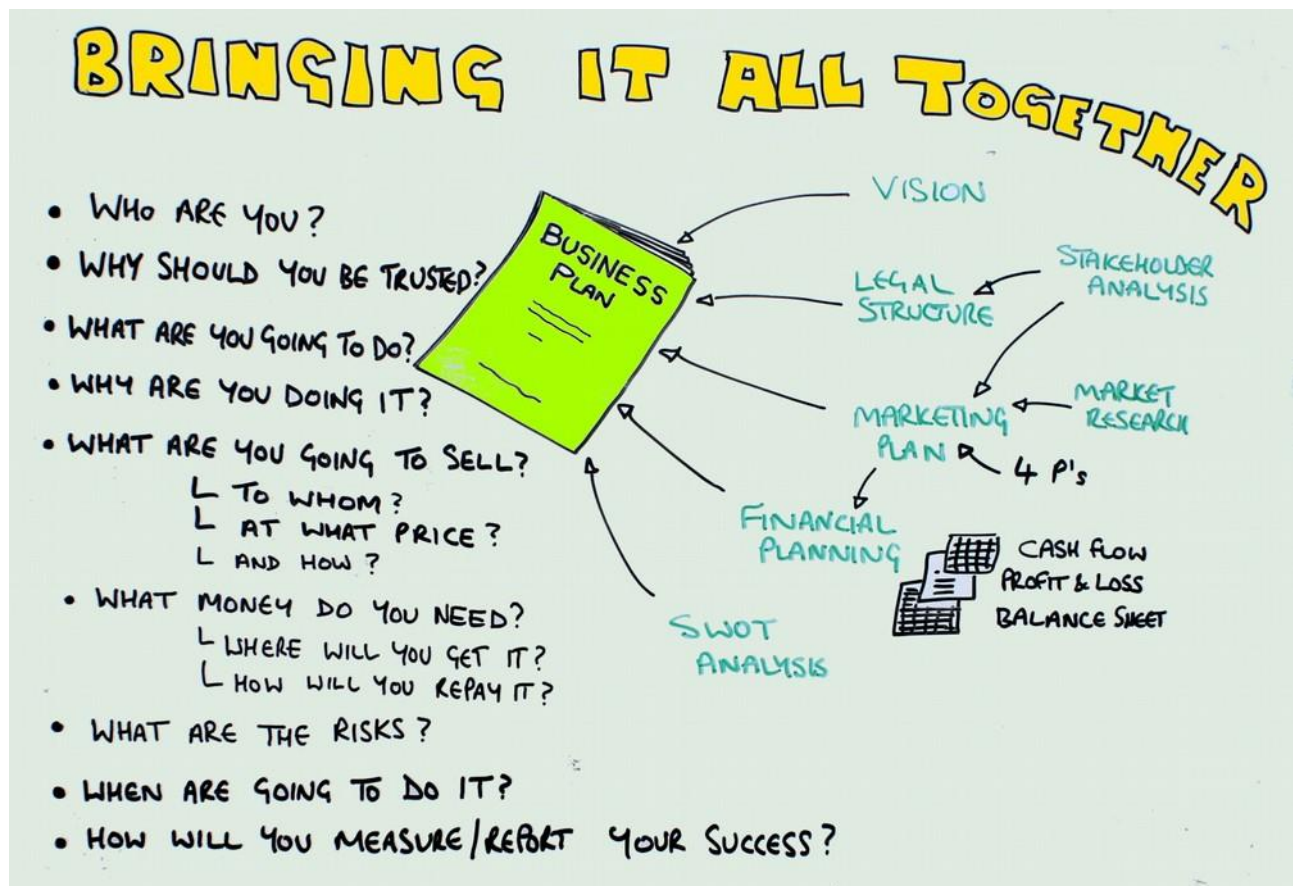 BRINGING IT ALL TOGETHER
• WHO ARE YOU?
• WHY SHOULD YOU BE TRUSTED?
• WHAT ARE YOU GOING TO DO?
• WHY ARE YOU DOING IT?
• WHAT ARE YOU GOING TO SELL?
└ TO WHOM?
└ AT WHAT PRICE?
└ AND HOW?
• WHAT MONEY DO YOU NEED?
└ WHERE WILL YOU GET IT?
└ HOW WILL YOU REPAY IT?
• WHAT ARE THE RISKS?
• WHEN ARE GOING TO DO IT?
• HOW WILL YOU MEASURE/REPORT YOUR SUCCESS?
BUSINESS
PLAN
VISION
LEGAL
STRUCTURE
STAKEHOLDER
ANALYSIS
MARKETING
PLAN
MARKET
RESEARCH
4 P's
FINANCIAL
PLANNING
CASH FLOW
PROFIT & LOSS
BALANCE SHEET
SWOT
ANALYSIS